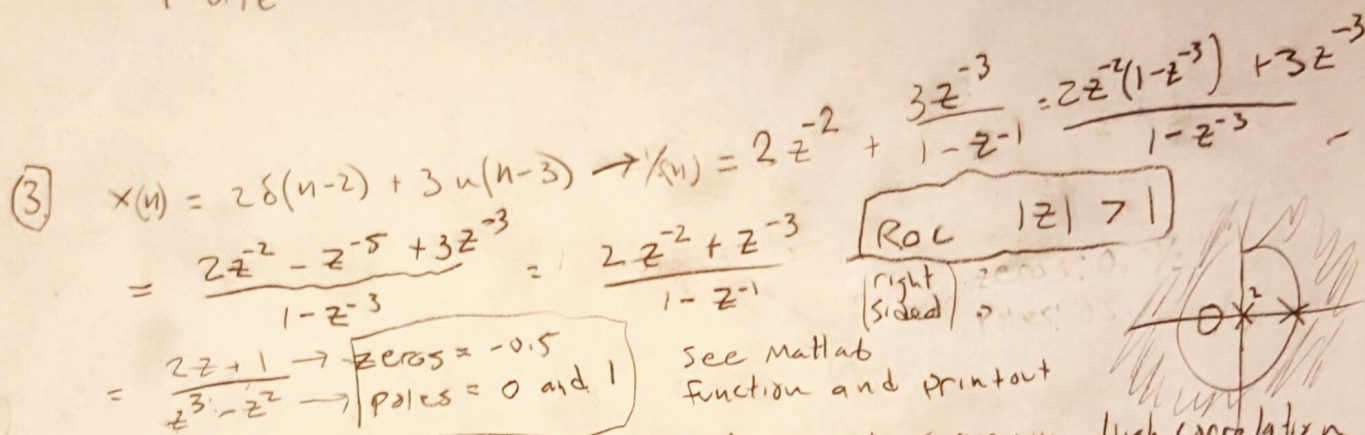 ③ x(n) = 2δ(n-2) + 3u(n-3) → X(n) = 2z^-2 + 3z^-3 / (1 - z^-1) = (2z^-2(1-z^-3) + 3z^-3) / (1 - z^-3)
= (2z^-2 - z^-5 + 3z^-3) / (1 - z^-3) = (2z^-2 + z^-3) / (1 - z^-1) ROC |z| > 1
(right sided)
= (2z + 1) / (z^3 - z^2) → zeros = -0.5
→ poles = 0 and 1
See Matlab
function and printout
2
High correlation